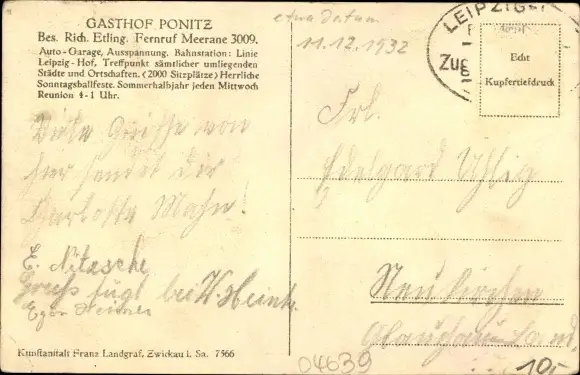 GASTHOF PONITZ
Bes. Rich. Etling. Fernruf Meerane 3009.
Auto-Garage, Ausspannung. Bahnstation: Linie
Leipzig-Hof. Treffpunkt sämtlicher umliegenden
Städte und Ortschaften. (2000 Sitzplätze) Herrliche
Sonntagsballfeste. Sommerhalbjahr jeden Mittwoch
Reunion 4-1 Uhr.
etwa Datum
11.12.1932
LEIPZIG-
Zug
Echt
Kupfertiefdruck
Viele Grüsse von
hier sendet dir
Charlotte Mahn!
E. Nitzsche
Gruß fügt bei W. Heinke
Egon
Frl.
Edelgard Uhlig
Neukirchen
Glauchau-Land
Kunstanstalt Franz Landgraf, Zwickau i. Sa. 7566
04639
10,-